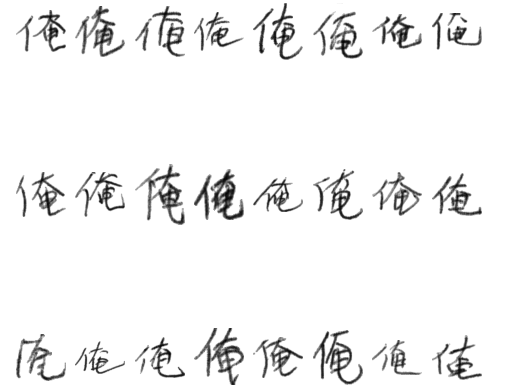 俺俺俺俺俺俺俺俺
俺俺俺俺俺俺俺俺
俺俺俺俺俺俺俺俺